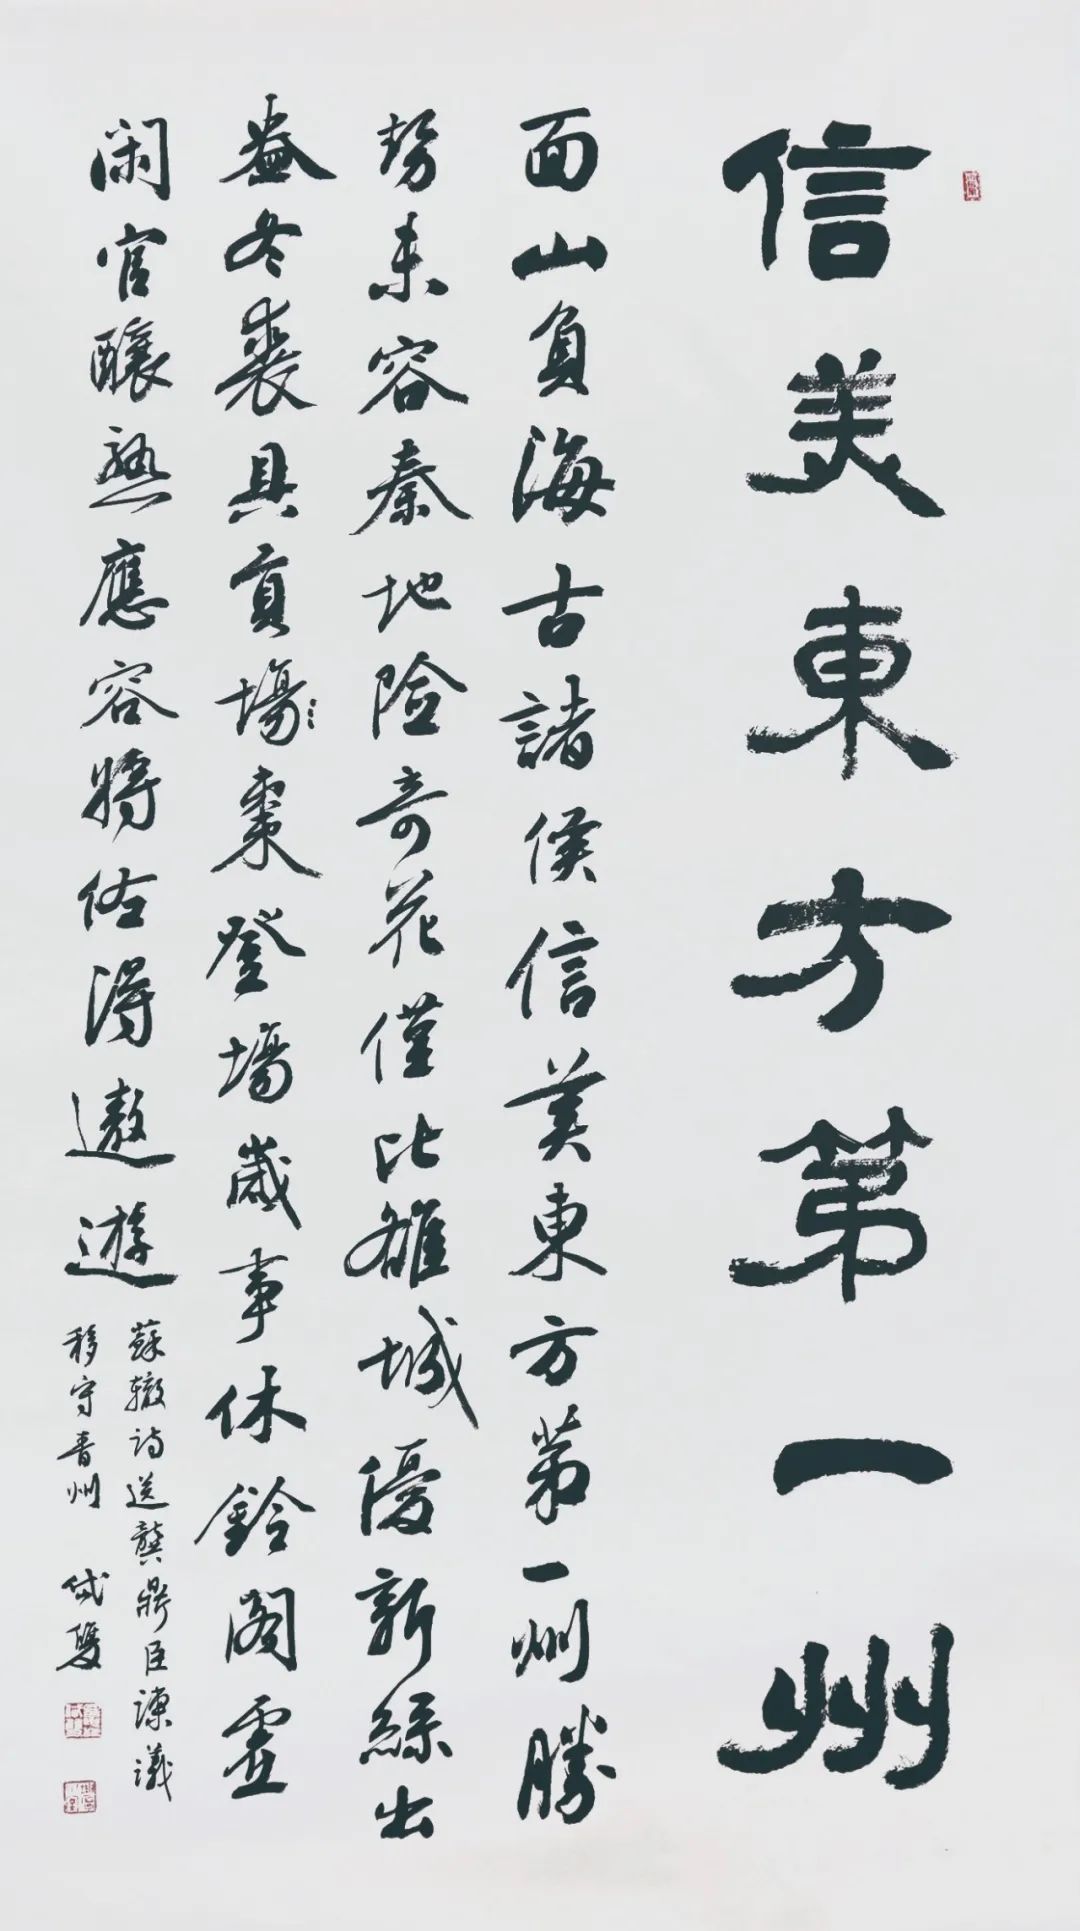 信美東方第一州
面山負海古諸侯信美東方第一州勝
勢未容秦地險奇花僅比雒城優新絲出
盎冬裘具貢塲棗登塲歲事休鈴閣虛
閑官釀熟應容將佐得遨遊
蘇轍詩送龔鼎臣諫議
移守青州